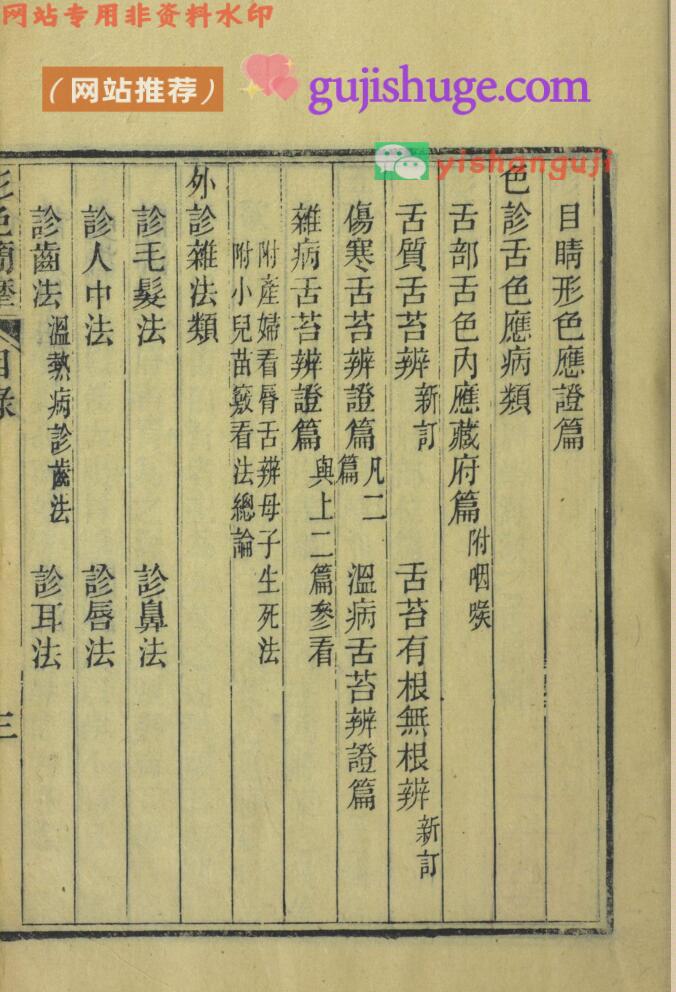 网站专用非资料水印
（网站推荐）
gujishuge.com
yishanguji
目睛形色應證篇
色診舌色應病類
舌部舌色內應藏府篇 附咽喉
舌質舌苔辨 新訂 舌苔有根無根辨 新訂
傷寒舌苔辨證篇 凡二篇 溫病舌苔辨證篇
雜病舌苔辨證篇 與上二篇參看
附產婦看唇舌辨母子生死法
附小兒苗竅看法總論
外診雜法類
診毛髮法 診鼻法
診人中法 診唇法
診齒法 溫熱病診齒法 診耳法
形色簡摩 目錄 三